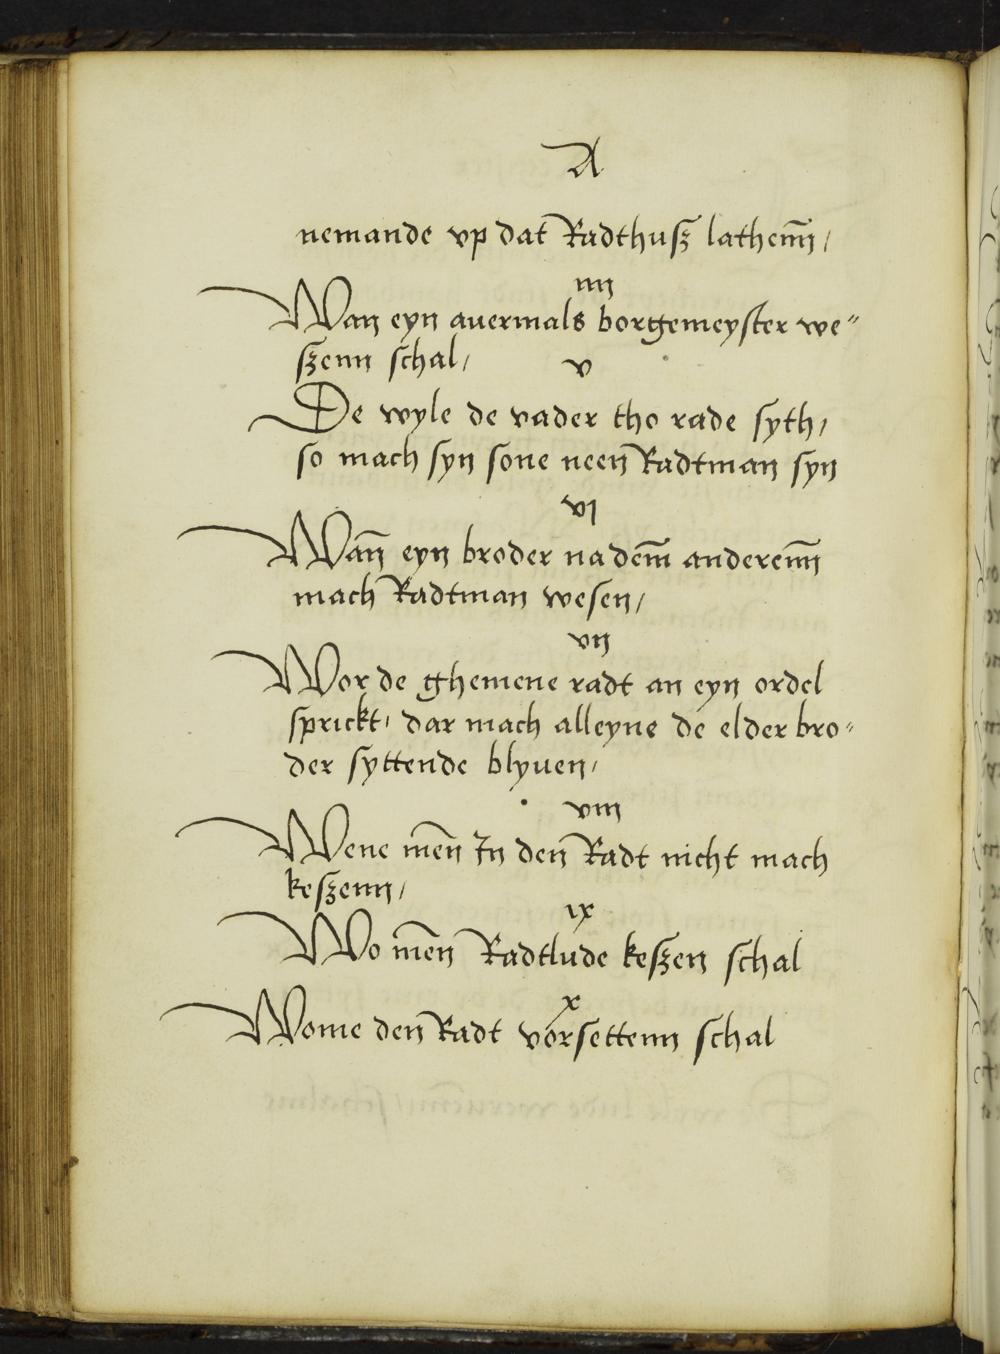 A
nemande vp dat Radthusz lathenn̄ /
iiij
Wan eyn auermals borgemeyster we〃
szenn schal /
v
De wyle de vader tho rade syth /
so mach syn sone neen̄ Radtman syn
vj
Wan̄ eyn broder na dem̄ anderenn̄
mach Radtman wesen /
vij
Wor de ghemene radt an eyn ordel
sprickt / dar mach alleyne de elder bro〃
der syttende blyuen /
viij
Wene men̄ In den̄ Radt nicht mach
keszenn /
ix
Wo men̄ Radtlude keszen schal
x
Wome den̄ Radt vorsettenn schal